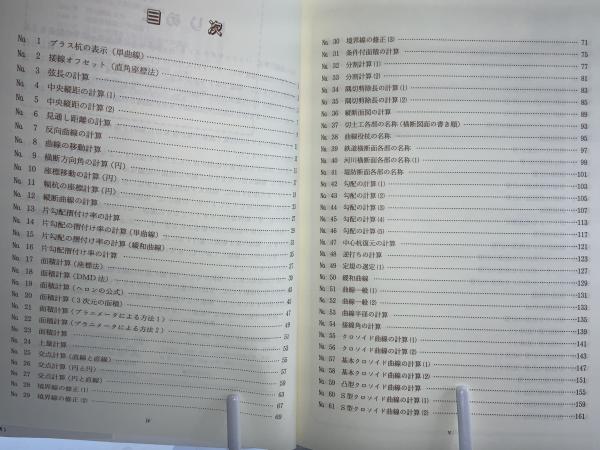 目次
No. 1 プラス杭の表示(単曲線)
No. 2 接線オフセット(直角座標法)
No. 3 弦長の計算
No. 4 中央縦距の計算(1)
No. 5 中央縦距の計算(2)
No. 6 見通し距離の計算
No. 7 反向曲線の計算
No. 8 曲線の移動計算
No. 9 横断方向角の計算(円)
No. 10 座標移動の計算(円)
No. 11 幅杭の座標計算(円)
No. 12 縦断曲線の計算
No. 13 片勾配摺付け率の計算
No. 14 片勾配の摺付け率の計算(単曲線)
No. 15 片勾配の摺付け率の計算(緩和曲線)
No. 16 片勾配摺付け率の計算
No. 17 面積計算(座標法) 37
No. 18 面積計算(DMD法) 39
No. 19 面積計算(ヘロンの公式) 43
No. 20 面積計算(3次元の面積) 45
No. 21 面積計算(プラニメータによる方法1) 47
No. 22 面積計算(プラニメータによる方法2) 49
No. 23 面積計算 51
No. 24 土量計算 53
No. 25 交点計算(直線と直線) 55
No. 26 交点計算(円と円) 57
No. 27 交点計算(円と直線) 59
No. 28 境界線の修正(1) 63
No. 29 境界線の修正(2) 67
69
iv
No. 30 境界線の修正(3) 71
No. 31 条件付面積の計算 75
No. 32 分割計算(1) 77
No. 33 分割計算(2) 81
No. 34 隅切剪除長の計算(1) 83
No. 35 隅切剪除長の計算(2) 85
No. 36 縦断面図の計算 89
No. 37 切土工各部の名称(横断図面の書き順) 93
No. 38 曲線役杭の名称 95
No. 39 鉄道横断面各部の名称 97
No. 40 河川横断面各部の名称(1) 99
No. 41 堤防断面各部の名称 101
No. 42 勾配の計算(1) 103
No. 43 勾配の計算(2) 105
No. 44 勾配の計算(3) 107
No. 45 勾配の計算(4) 111
No. 46 勾配の計算(5) 113
No. 47 中心杭復元の計算 117
No. 48 逆打ちの計算 121
No. 49 定規の選定(1) 123
No. 50 緩和曲線 127
No. 51 曲線一般(1) 129
No. 52 曲線一般(2) 131
No. 53 曲線半径の計算 133
No. 54 接線角の計算 135
No. 55 クロソイド曲線の計算(1) 139
No. 56 クロソイド曲線の計算(2) 141
No. 57 基本クロソイド曲線の計算(1) 143
No. 58 基本クロソイド曲線の計算(2) 147
No. 59 凸型クロソイド曲線の計算 151
No. 60 S型クロソイド曲線の計算(1) 155
No. 61 S型クロソイド曲線の計算(2) 159
161
v